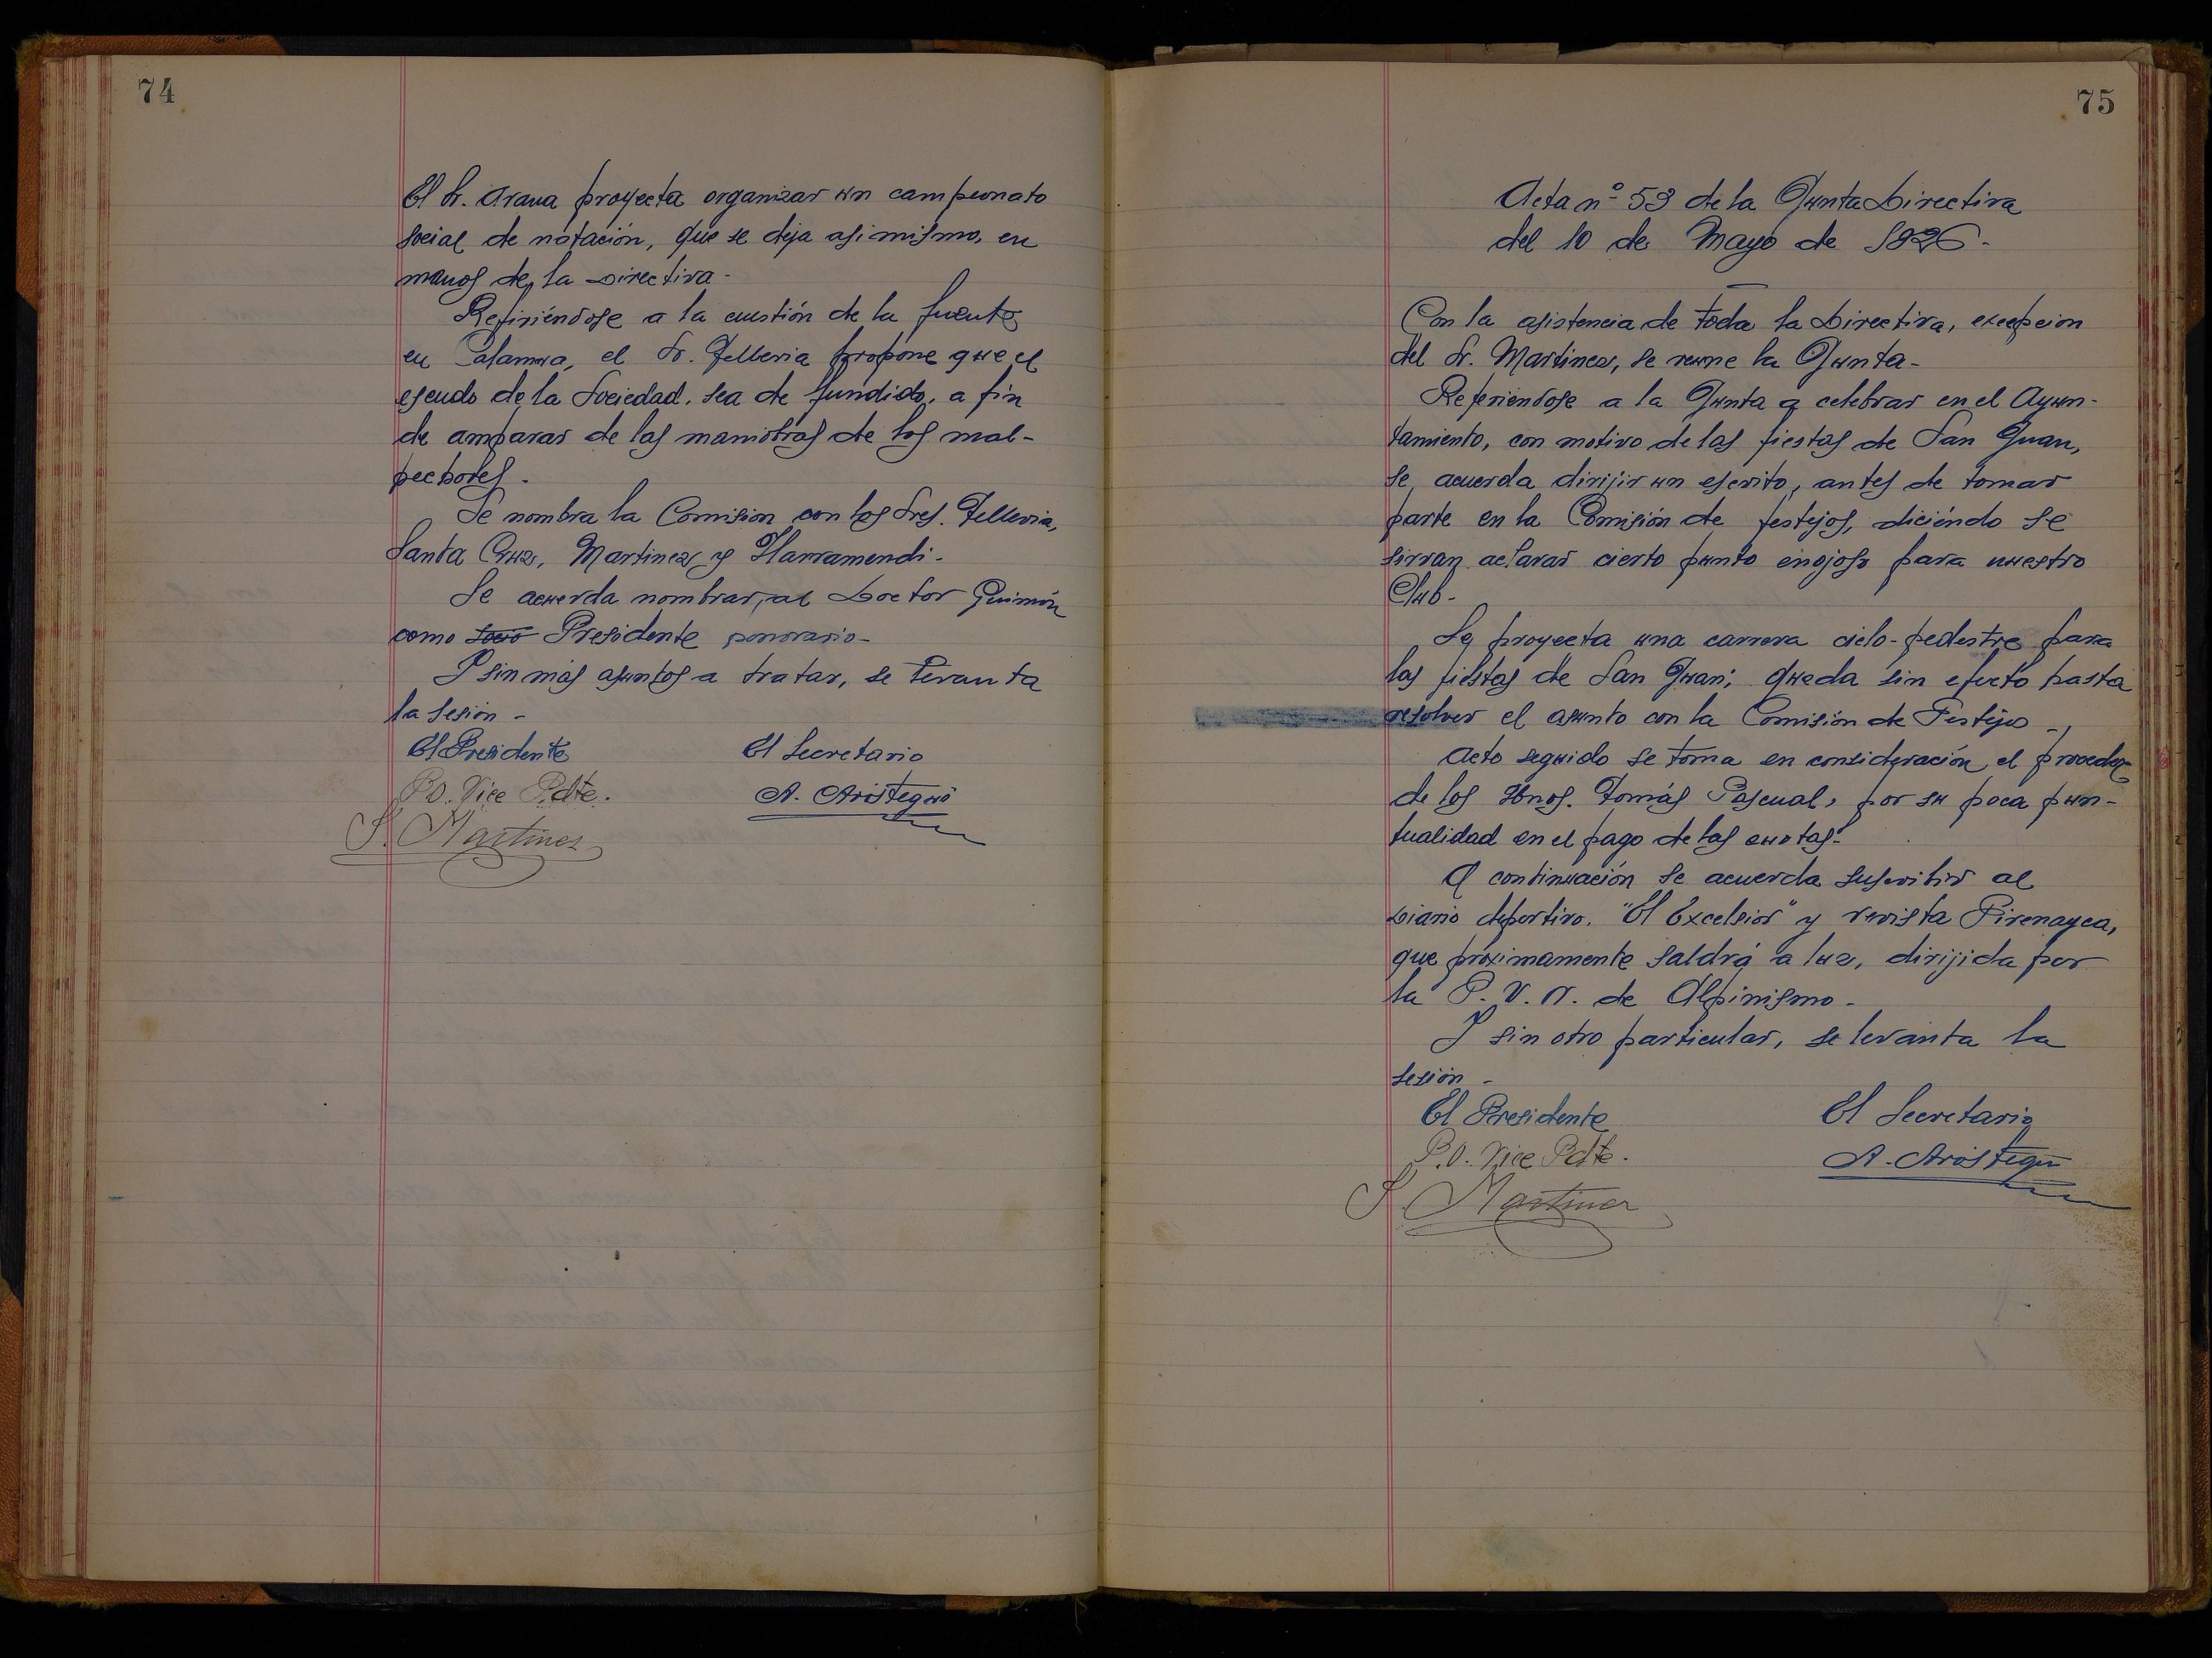 74
El Sr. Arana proyecta organizar un campeonato
social de natación, que se deja asimismo, en
manos de la Directiva -
Refiriéndose a la cuestión de la fuente
en el Sr. Telleria propone que el
escudo de la Sociedad, sea de fundido, a fin
de amparar de las maniobras de los mal-
hechores.
Se nombra la Comision con los Sres. Telleria,
Santa Cruz, Martinez y Ilarramendi -
Se acuerda nombrar, al Doctor Guimón
como socio Presidente honorario -
Y sin más asuntos a tratar, se levanta
la sesión -
El Presidente El Secretario
P.O. Vice Pdte. A. Aristegui
S. Martinez
75
Acta nº 53 de la Junta Directiva
del 10 de Mayo de 1926 -
Con la asistencia de toda la Directiva, excepcion
del Sr. Martinez, se reune la Junta -
Refiriendose a la Junta a celebrar en el Ayun-
tamiento, con motivo de las fiestas de San Juan,
se acuerda dirijir un escrito, antes de tomar
parte en la Comisión de festejos, diciéndo se
sirvan aclarar cierto punto enojoso para nuestro
Club -
Se proyecta una carrera ciclo-pedestre para
las fiestas de San Juan; queda sin efecto hasta
resolver el asunto con la Comisión de Festejos -
Acto seguido se toma en consideración el proceder
de los Hnos. Tomás Pascual, por su poca pun-
tualidad en el pago de las cuotas -
A continuación se acuerda suscribir al
Diario deportivo. "El Excelsior" y revista Pirenayca,
que próximamente saldrá a luz, dirijida por
la F. V. N. de Alpinismo -
Y sin otro particular, se levanta la
sesión -
El Presidente El Secretario
P.O. Vice Pdte. A. Aristegui
S. Martinez